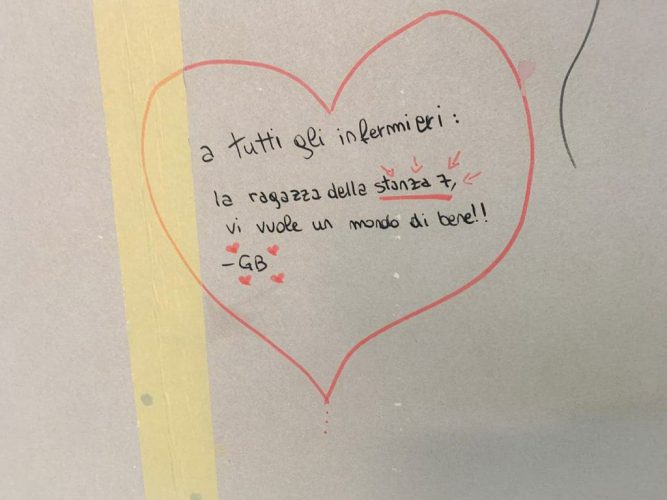 a tutti gli infermieri:
la ragazza della stanza 7,
vi vuole un mondo di bene!!
-GB